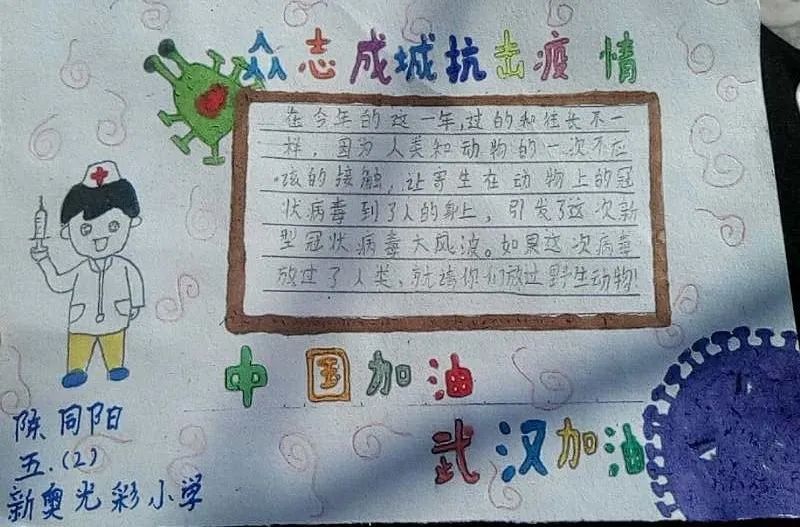 众志成城抗击疫情
在今年的这一年,过的和往长不一
样，因为人类和动物的一次不应
该的接触，让寄生在动物上的冠
状病毒到了人的身上，引发了这次新
型冠状病毒大风波。如果这次病毒
放过了人类、就请你们放过野生动物!
中国加油
武汉加油
陈同阳
五.(2)
新奥光彩小学